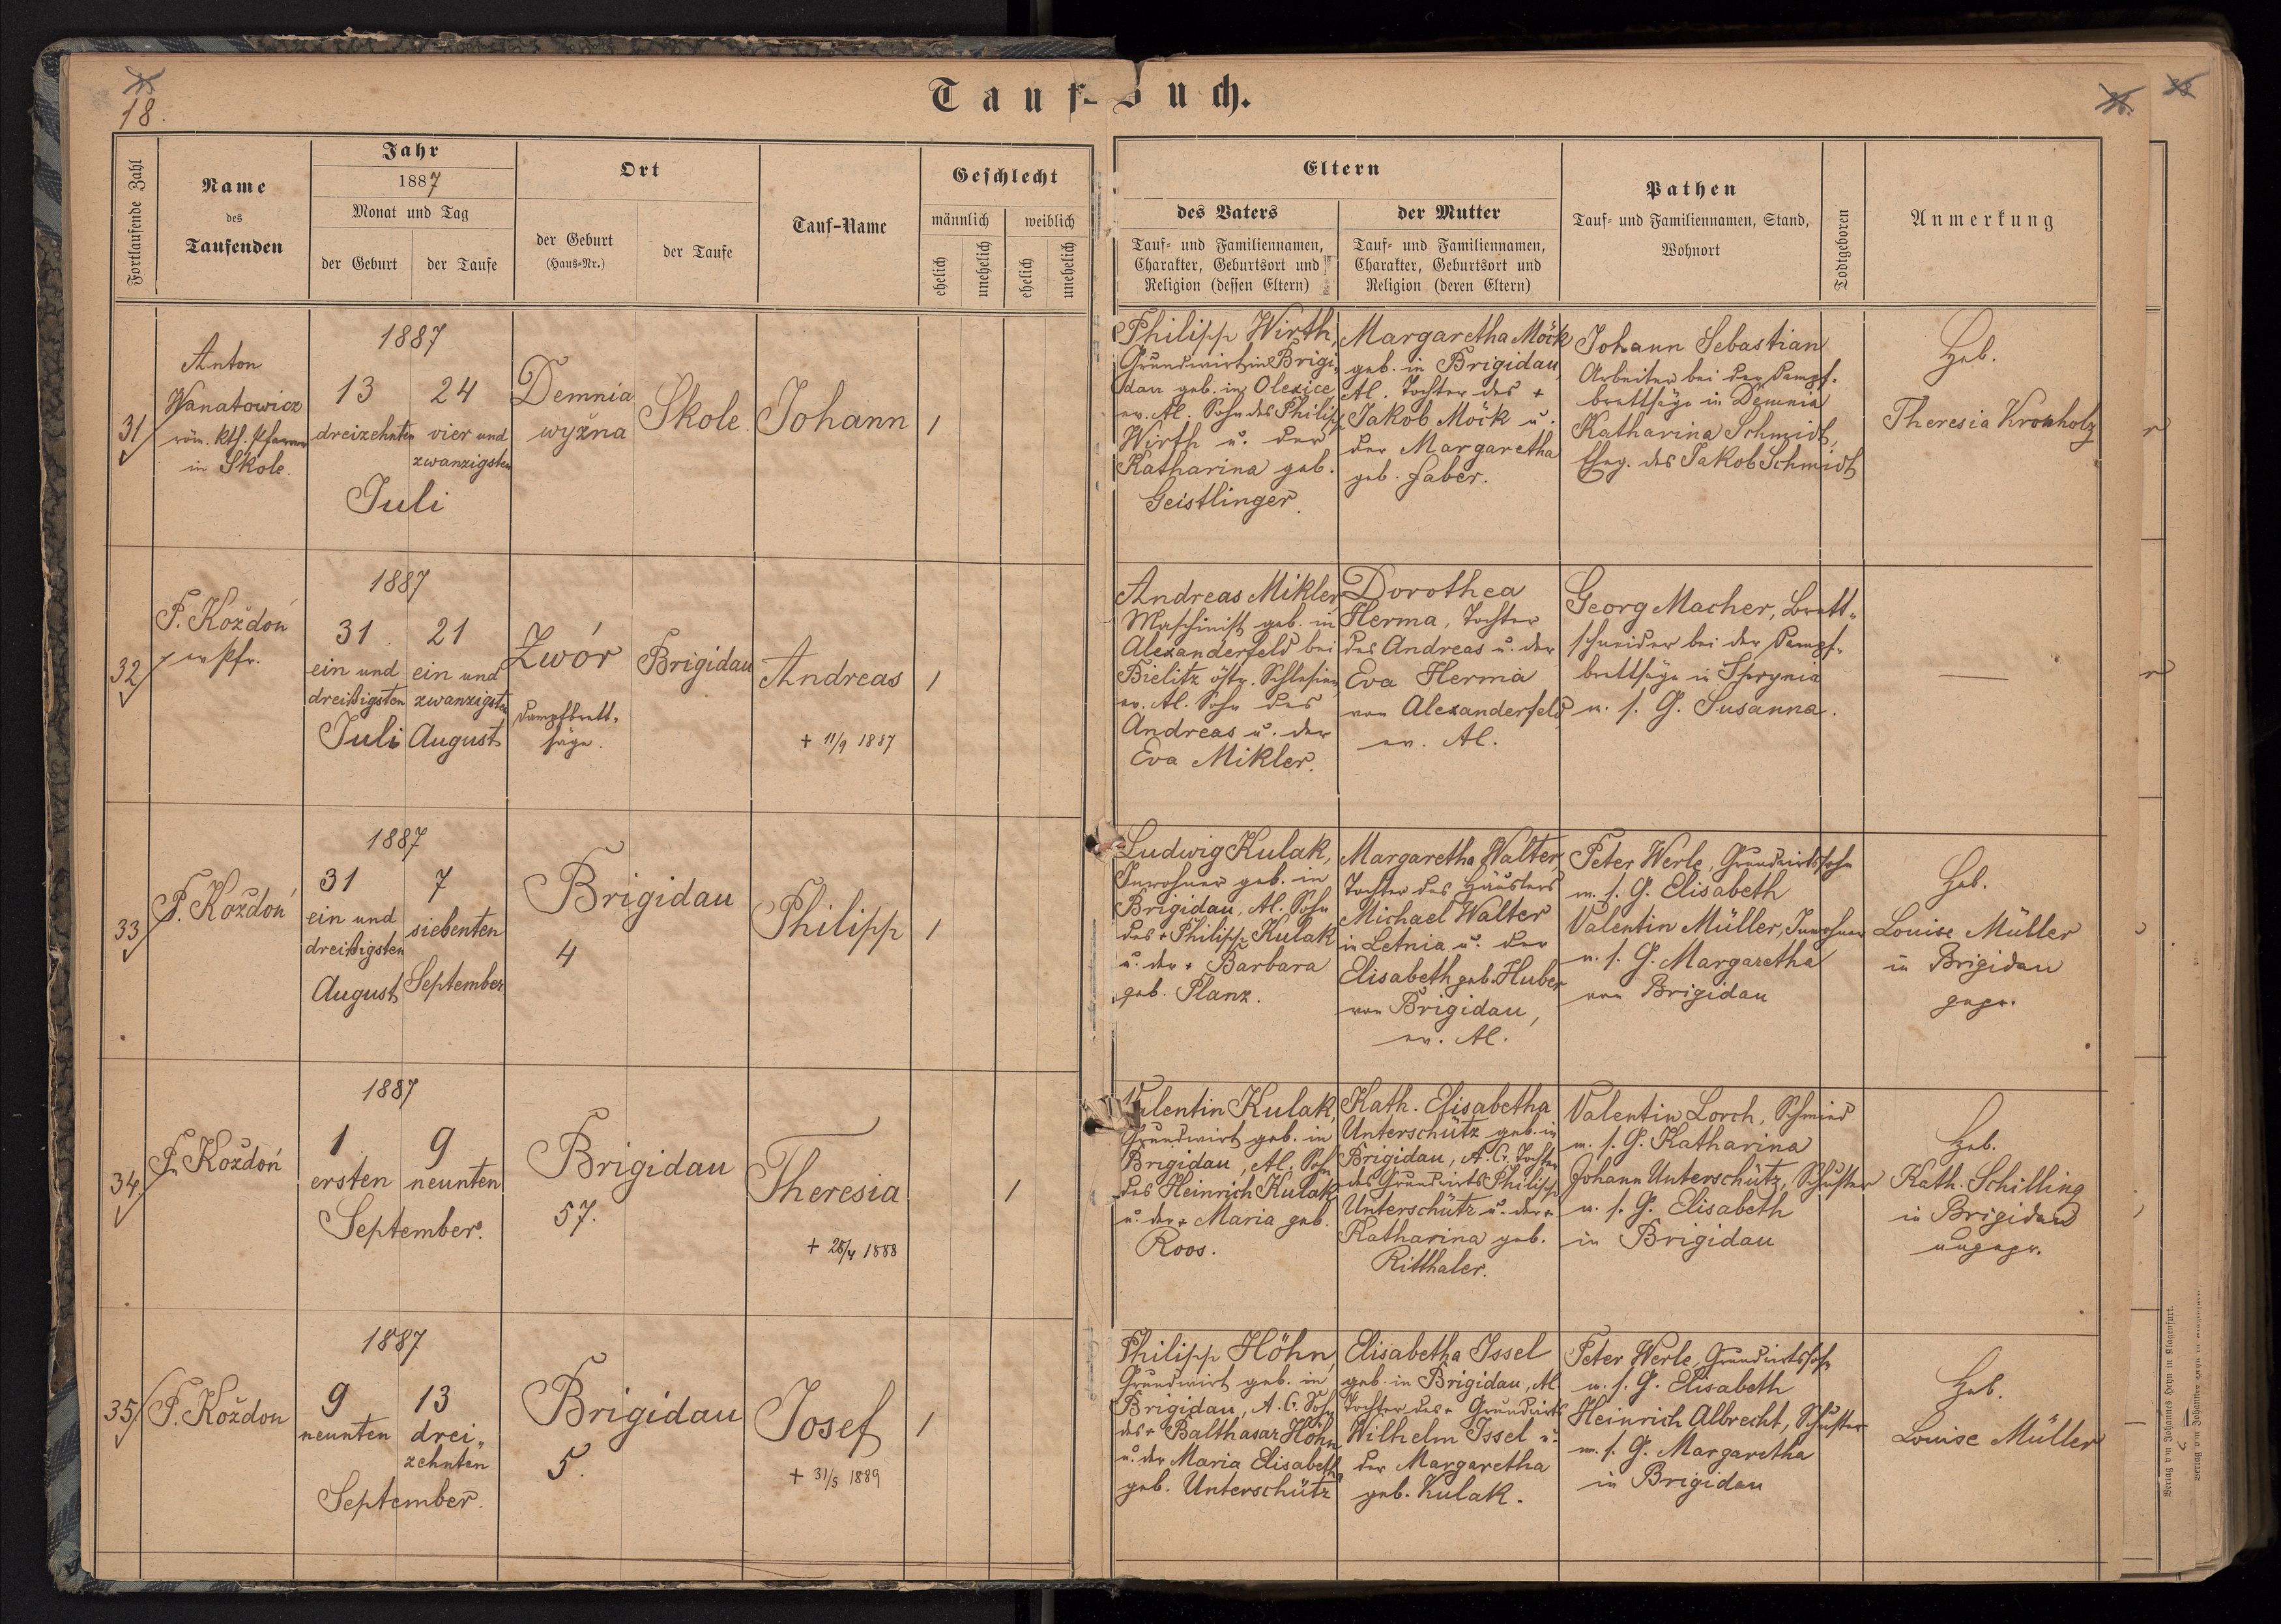 Tauf-Buch.
18.
Fortlaufende Zahl
Name
des
Taufenden
Jahr
1887
Monat und Tag
der Geburt
der Taufe
Ort
der Geburt
(Haus-Nr.)
der Taufe
Tauf-Name
Geschlecht
männlich
weiblich
ehelich
unehelich
ehelich
unehelich
Eltern
des Vaters
Tauf- und Familiennamen,
Charakter, Geburtsort und
Religion (dessen Eltern)
der Mutter
Tauf- und Familiennamen,
Charakter, Geburtsort und
Religion (deren Eltern)
Pathen
Tauf- und Familiennamen, Stand,
Wohnort
Todtgeboren
Anmerkung
31
Anton
Wanatowicz
röm. kth. Pfarrer
in Skole.
1887
13
dreizehnten
24
vier und
zwanzigsten
Juli
Demnia
wyżna
Skole
Johann
1
Philipp Wirth,
Grundwirt in Brigi-
dau geb. in Olexice
ev. Al. Sohn des Philipp
Wirth u. der
Katharina geb.
Geistlinger.
Margaretha Möck
geb. in Brigidau,
Al. Tochter des +
Jakob Möck u.
der Margaretha
geb. Faber.
Johann Sebastian
Arbeiter bei der Dampf-
brettsäge in Demnia
Katharina Schmidt,
Eheg. des Jakob Schmidt
Heb.
Theresia Kronholz
32
F. Koždoń
ev Pfr.
1887
31
ein und
dreißigsten
Juli
21
ein und
zwanzigsten
August
Zwór
Dampfbrett-
säge.
Brigidau
Andreas
+ 11/9 1887
1
Andreas Mikler
Maschinist geb. in
Alexanderfeld bei
Bielitz östr. Schlesien
ev. Al. Sohn des
Andreas u. der
Eva Mikler.
Dorothea
Herma, Tochter
des Andreas u. der
Eva Herma
von Alexanderfeld
ev. Al.
Georg Macher, Brett-
schneider bei der Dampf-
brettsäge in
u. s. G. Susanna.
33
F. Koždoń
1887
31
ein und
dreißigsten
August
7
siebenten
September
Brigidau
4
Philipp
1
Ludwig Kulak,
Inwohner geb. in
Brigidau, Al. Sohn
des + Philipp Kulak
u. der + Barbara
geb. Planz.
Margaretha Walter,
Tochter des Häuslers
Michael Walter
in Letnia u. der
Elisabeth geb. Huber
von Brigidau,
ev. Al.
Peter Werle, Grundwirtssohn
m. s. G. Elisabeth
Valentin Müller, Inwohner
u. s. G. Margaretha
von Brigidau
Heb.
Louise Müller
in Brigidau
gepr.
34
F. Koždoń
1887
1
ersten
9
neunten
September.
Brigidau
57.
Theresia
+ 28/4 1888
1
Valentin Kulak,
Grundwirt geb. in
Brigidau, Al. Sohn
des Heinrich Kulak
u. der + Maria geb.
Roos.
Kath. Elisabetha
Unterschütz geb. in
Brigidau, A. C. Tochter
des Grundwirts Philipp
Unterschütz u. der +
Katharina geb.
Ritthaler.
Valentin Lorch, Schmied
m. s. G. Katharina
Johann Unterschütz, Schuster
u. s. G. Elisabeth
in Brigidau
Heb.
Kath. Schilling
in Brigidau
ungepr.
35
F. Koždon
1887
9
neunten
13
drei-
zehnten
September.
Brigidau
5.
Josef
+ 31/5 1889
1
Philipp Höhn,
Grundwirt geb. in
Brigidau, A. C. Sohn
des + Balthasar Höhn
u. der Maria Elisabeth
geb. Unterschütz
Elisabetha Issel
geb. in Brigidau, Al
Tochter des + Grundwirts
Wilhelm Issel u.
der Margaretha
geb. Kulak.
Peter Werle, Grundwirtssohn
u. s. G. Elisabeth
Heinrich Albrecht, Schuster
m. s. G. Margaretha
in Brigidau
Heb.
Louise Müller
Verlag von Johannes Heyn in Klagenfurt.